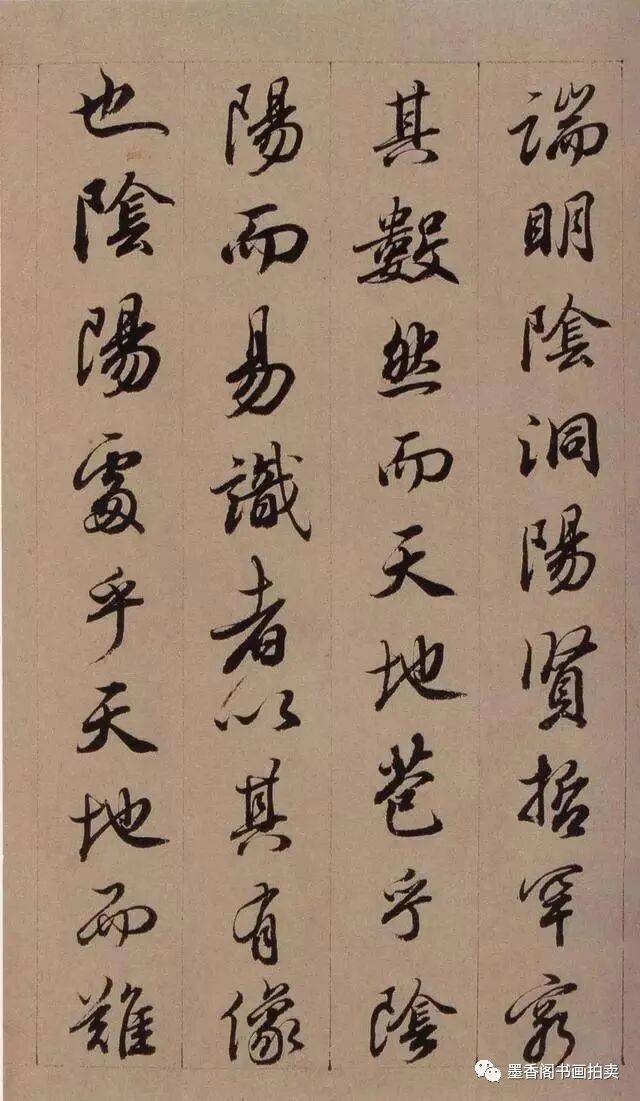 端明陰洞陽賢哲罕窮
其數然而天地苞乎陰
陽而易識者以其有像
也陰陽處乎天地而難
墨香阁书画拍卖